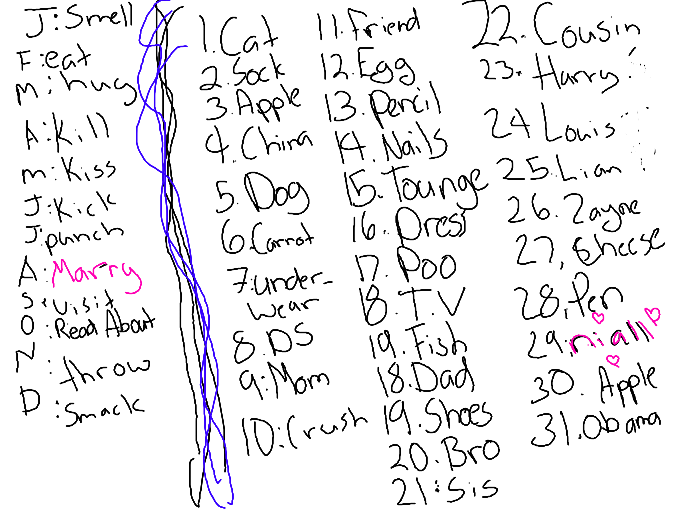 J: Smell
F: eat
m: hug
A: Kill
m: Kiss
J: Kick
J: punch
A: Marry
S: visit
O: Read About
N: throw
D: Smack
1. Cat
2. Sock
3. Apple
4. China
5. Dog
6. Carrot
7. under-
wear
8. DS
9. Mom
10. Crush
11. Friend
12. Egg
13. Pencil
14. Nails
15. Tounge
16. Dress
17. Poo
18. T.V
19. Fish
18. Dad
19. Shoes
20. Bro
21. Sis
22. Cousin
23. Harry
24 Louis
25. Lian
26. Zayne
27. Cheese
28. Pen
29. niall
30. Apple
31. Obama